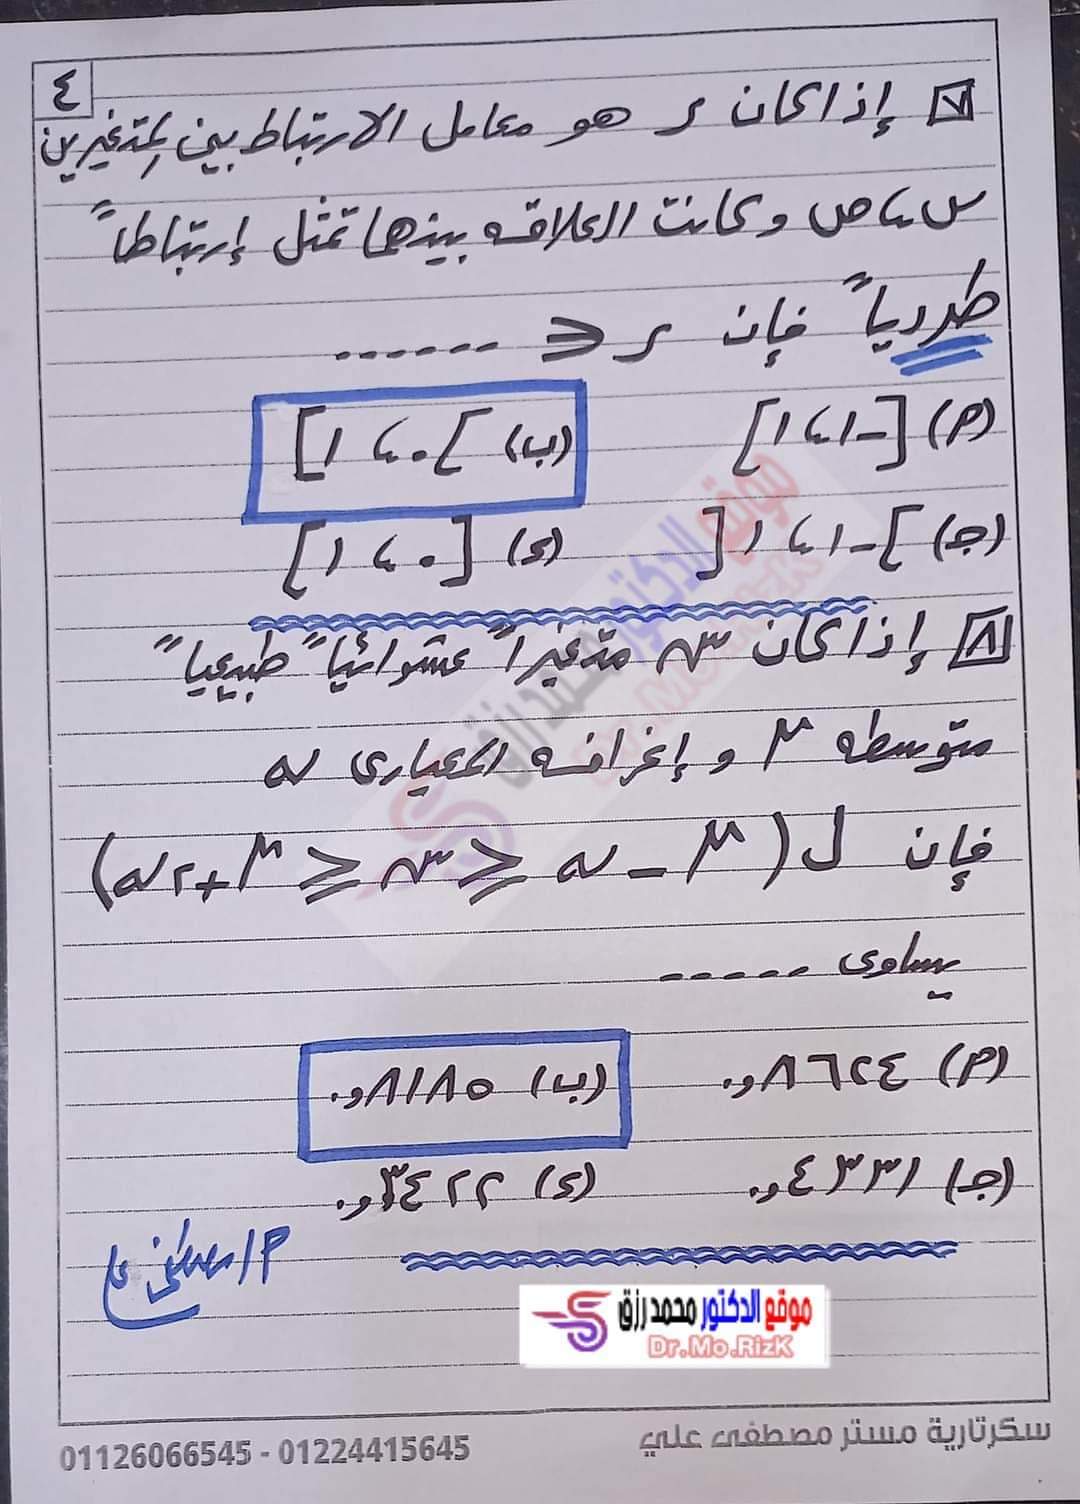 ٤
٧ إذا كان ر هو معامل الارتباط بين المتغيرين
س ، ص وكانت العلاقه بينهما تمثل إرتباطاً
طردياً فإن ر ∈ ------
(م) [-١ ، ١] (ب) ]٠ ، ١]
(جـ) ]-١ ، ١[ (د) [٠ ، ١]
٨ إذا كان س متغيراً عشوائياً طبيعياً
متوسطه μ و إنحرافه المعيارى σ
فإن ل(μ - σ ≤ س ≤ μ + ٢σ)
يساوى -----
(م) ٠,٨٦٢٤ (ب) ٠,٨١٨٥
(جـ) ٠,٤٣٣١ (د) ٠,٣٤٢٢
م/ مصطفى علي
موقع الدكتور محمد رزق
Dr.Mo.RizK
سكرتارية مستر مصطفى علي 01224415645 - 01126066545